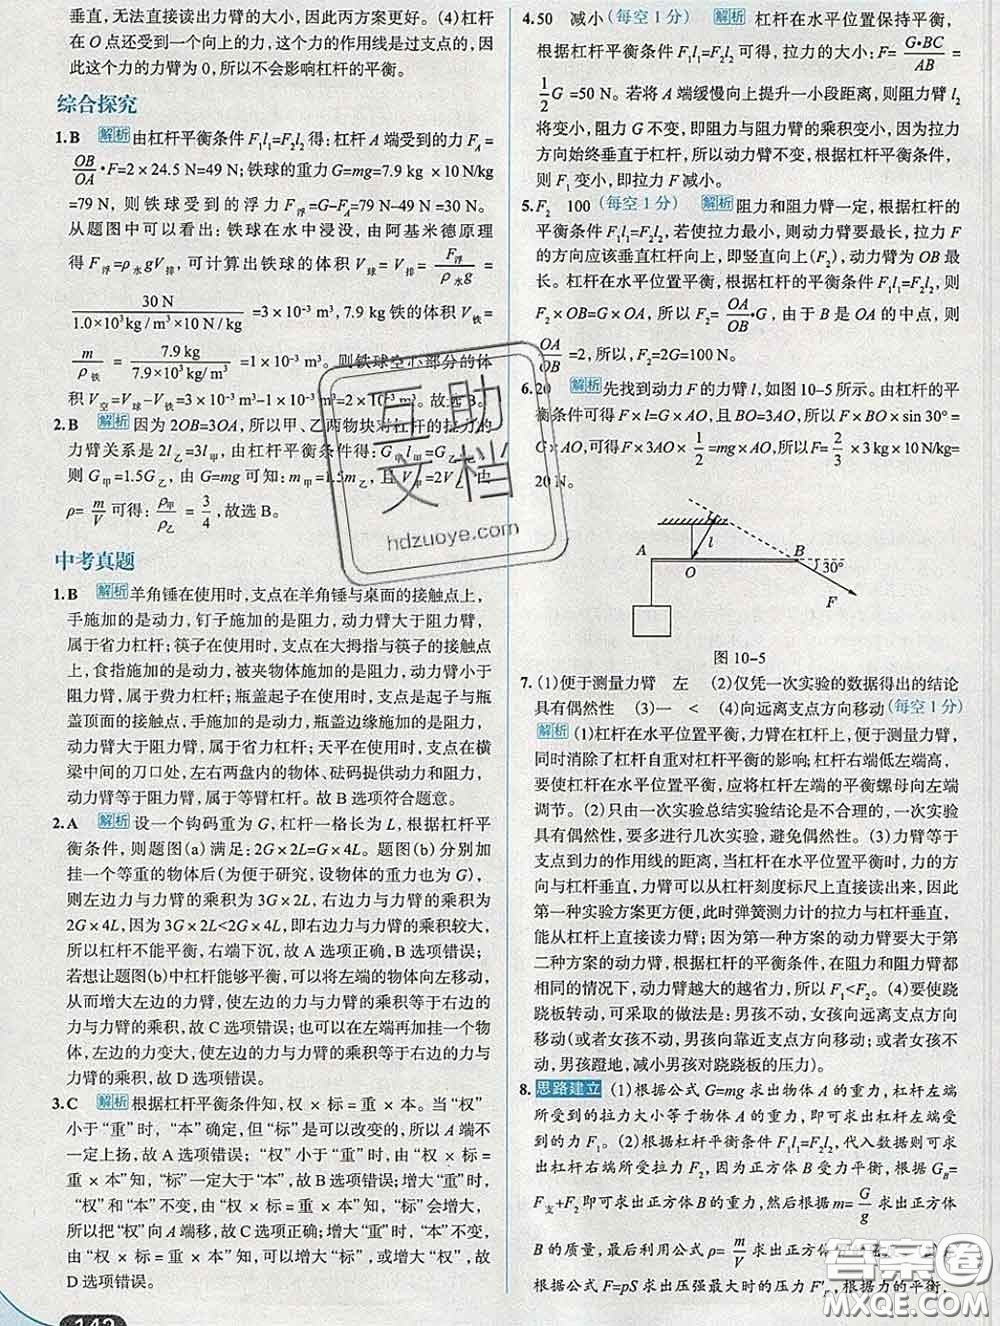 无法直接读出力臂的大小，因此丙方案更好。(4)杠杆
在O点还受到一个向上的力，这个力的作用线是过支点的，因
此这个力的力臂为0，所以不会影响杠杆的平衡。
综合探究
1.B 解析 由杠杆平衡条件F₁l₁=F₂l₂得：杠杆A端受到的力F_A=
OB/OA·F=2×24.5 N=49 N；铁球的重力G=mg=7.9 kg×10 N/kg
=79 N，则铁球受到的浮力F浮=G-F_A=79 N-49 N=30 N。
从题图中可以看出：铁球在水中浸没，由阿基米德原理
得F浮=ρ水gV排，可计算出铁球的体积V球=V排=F浮/ρ水g=
30 N/1.0×10³kg/m³×10 N/kg=3×10⁻³ m³，7.9 kg铁的体积V铁=
m/ρ铁=7.9 kg/7.9×10³ kg/m³=1×10⁻³ m³。则铁球空心部分的体
积V空=V球-V铁=3×10⁻³ m³-1×10⁻³ m³=2×10⁻³ m³。故选B。
2.B 解析 因为2OB=3OA，所以甲、乙两物块对杠杆的拉力的
力臂关系是2l乙=3l甲，由杠杆平衡条件得：G甲l甲=G乙l乙，
则G甲=1.5G乙，由G=mg可知：m甲=1.5m乙，且V甲=2V乙，由
ρ=m/V可得：ρ甲/ρ乙=3/4，故选B。
中考真题
1.B 解析 羊角锤在使用时，支点在羊角锤与桌面的接触点上，
手施加的是动力，钉子施加的是阻力，动力臂大于阻力臂，
属于省力杠杆；筷子在使用时，支点在大拇指与筷子的接触点
上，食指施加的是动力，被夹物体施加的是阻力，动力臂小于
阻力臂，属于费力杠杆；瓶盖起子在使用时，支点是起子与瓶
盖顶面的接触点，手施加的是动力，瓶盖边缘施加的是阻力，
动力臂大于阻力臂，属于省力杠杆；天平在使用时，支点在横
梁中间的刀口处，左右两盘内的物体、砝码提供动力和阻力，
动力臂等于阻力臂，属于等臂杠杆。故B选项符合题意。
2.A 解析 设一个钩码重为G，杠杆一格长为L，根据杠杆平
衡条件，则题图(a)满足：2G×2L=G×4L。题图(b)分别加
挂一个等重的物体后(为便于研究，设物体的重力也为G)，
则左边力与力臂的乘积为3G×2L，右边力与力臂的乘积为
2G×4L，因为3G×2L<2G×4L，即右边力与力臂的乘积较大，
所以杠杆不能平衡，右端下沉，故A选项正确，B选项错误；
若想让题图(b)中杠杆能够平衡，可以将左端的物体向左移动，
从而增大左边的力臂，使左边的力与力臂的乘积等于右边的
力与力臂的乘积，故C选项错误；也可以在左端再加挂一个物
体，左边的力变大，使左边的力与力臂的乘积等于右边的力
与力臂的乘积，故D选项错误。
3.C 解析 根据杠杆平衡条件知，权×标=重×本。当“权”
小于“重”时，“本”确定，但“标”是可以改变的，所以A端不
一定上扬，故A选项错误；“权”小于“重”时，由“权×标=
重×本”知，“标”一定大于“本”，故B选项错误；增大“重”时，
“权”和“本”不变，由“权×标=重×本”知，“标”会增大，
所以把“权”向A端移，故C选项正确；增大“重”时，“本”不变，
由“权×标=重×本”知，可以增大“标”，或增大“权”，故
D选项错误。
142
4.50 减小(每空1分) 解析 杠杆在水平位置保持平衡，
根据杠杆平衡条件F₁l₁=F₂l₂可得，拉力的大小：F=G·BC/AB=
1/2G=50 N。若将A端缓慢向上提升一小段距离，则阻力臂l₂
将变小，阻力G不变，即阻力与阻力臂的乘积变小，因为拉力
方向始终垂直于杠杆，所以动力臂不变，根据杠杆平衡条件，
则F₁变小，即拉力F减小。
5.F₂ 100(每空1分) 解析 阻力和阻力臂一定，根据杠杆的
平衡条件F₁l₁=F₂l₂，若使拉力最小，则动力臂要最长，拉力F
的方向应该垂直杠杆向上，即竖直向上(F₂)，动力臂为OB最
长。杠杆在水平位置平衡，根据杠杆的平衡条件F₁l₁=F₂l₂，则
F₂×OB=G×OA，所以F₂=OA/OB·G，由于B是OA的中点，则
OA/OB=2，所以，F₂=2G=100 N。
6.20 解析 先找到动力F的力臂l，如图10-5所示。由杠杆的平
衡条件可得F×l=G×AO，且BO=3AO，所以F×BO×sin 30°=
G×AO，可得F×3AO×1/2=mg×AO，F=2/3×3 kg×10 N/kg=
20 N。
A
O
l
B
30°
F
图10-5
7.(1)便于测量力臂 左 (2)仅凭一次实验的数据得出的结论
具有偶然性 (3)一 < (4)向远离支点方向移动(每空1分)
解析 (1)杠杆在水平位置平衡，力臂在杠杆上，便于测量力臂，
同时消除了杠杆自重对杠杆平衡的影响；杠杆右端低左端高，
要使杠杆在水平位置平衡，应将杠杆左端的平衡螺母向左端
调节。(2)只由一次实验总结实验结论是不合理的，一次实验
具有偶然性，要多进行几次实验，避免偶然性。(3)力臂等于
支点到力的作用线的距离，当杠杆在水平位置平衡时，力的方
向与杠杆垂直，力臂可以从杠杆刻度标尺上直接读出来，因此
第一种实验方案更方便，此时弹簧测力计的拉力与杠杆垂直，
能从杠杆上直接读力臂；因为第一种方案的动力臂要大于第
二种方案的动力臂，根据杠杆的平衡条件，在阻力和阻力臂都
相同的情况下，动力臂越大的越省力，所以F₁<F₂。(4)要使跷
跷板转动，可采取的做法是：男孩不动，女孩向远离支点方向
移动(或者女孩不动，男孩向靠近支点方向移动；或者女孩不
动，男孩蹬地，减小男孩对跷跷板的压力)。
8.思路建立 (1)根据公式G=mg求出物体A的重力，杠杆左端
所受到的拉力大小等于物体A的重力，即可求出杠杆左端受
到的力F₁。(2)根据杠杆平衡条件F₁l₁=F₂l₂，代入数据则可求
出杠杆右端所受拉力F₂，因为正方体B受力平衡，根据G_B=
F支+F₂即可求出正方体B的重力，然后根据m=G/g求出正方体
B的质量，最后利用公式ρ=m/V求出正方体
根据公式F=pS求出压强最大时的压力F′，根据力的平衡，
互助文档
hdzuoye.com
答案圈
MXQE.COM